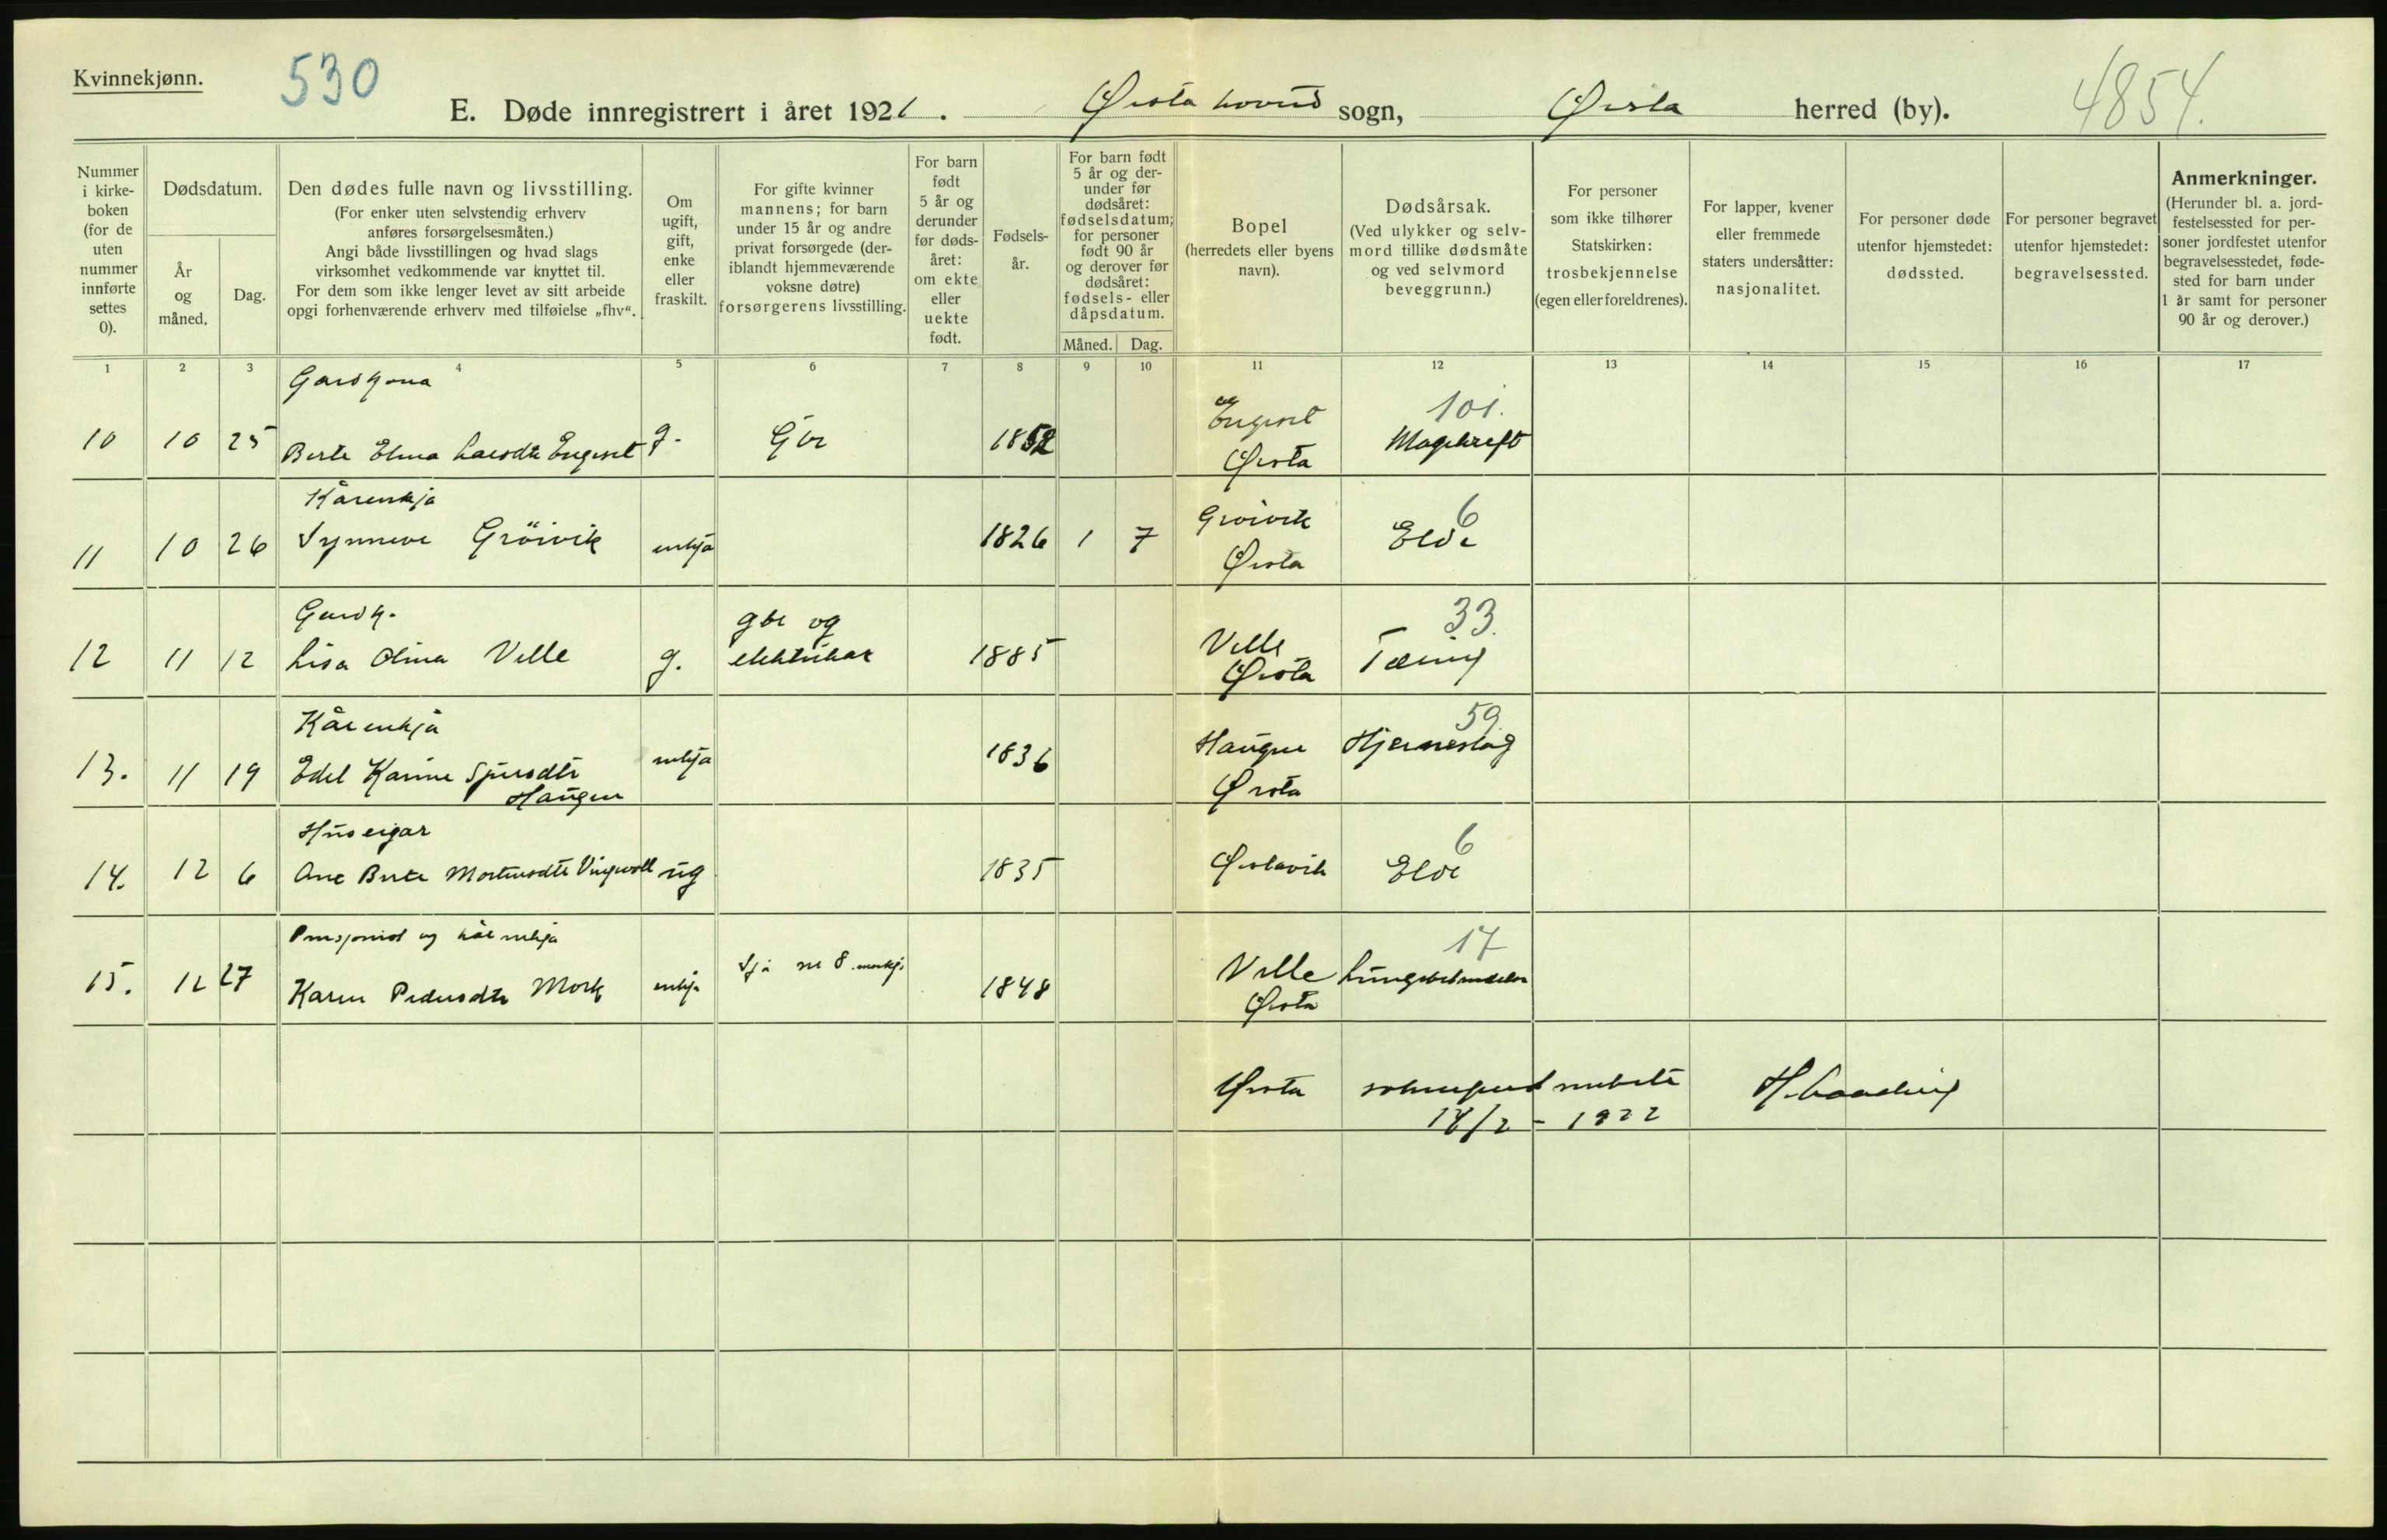 Kvinnekjønn.
530
E. Døde innregistrert i året 1921. Ørsta hovud sogn, Ørsta herred (by).
4854.
Nummer i kirke- boken (for de uten nummer innførte settes 0).
Dødsdatum.
År og måned.
Dag.
Den dødes fulle navn og livsstilling.
(For enker uten selvstendig erhverv anføres forsørgelsesmåten.)
Angi både livsstillingen og hvad slags virksomhet vedkommende var knyttet til.
For dem som ikke lenger levet av sitt arbeide opgi forhenværende erhverv med tilføielse „fhv“.
Om ugift, gift, enke eller fraskilt.
For gifte kvinner mannens; for barn under 15 år og andre privat forsørgede (der- iblandt hjemmeværende voksne døtre) forsørgerens livsstilling.
For barn født 5 år og derunder før døds- året: om ekte eller uekte født.
Fødsels- år.
For barn født 5 år og der- under før dødsåret: fødselsdatum; for personer født 90 år og derover før dødsåret: fødsels- eller dåpsdatum.
Måned. Dag.
Bopel (herredets eller byens navn).
Dødsårsak. (Ved ulykker og selv- mord tillike dødsmåte og ved selvmord beveggrunn.)
For personer som ikke tilhører Statskirken: trosbekjennelse (egen eller foreldrenes).
For lapper, kvener eller fremmede staters undersåtter: nasjonalitet.
For personer døde utenfor hjemstedet: dødssted.
For personer begravet utenfor hjemstedet: begravelsessted.
Anmerkninger.
(Herunder bl. a. jord- festelsessted for per- soner jordfestet utenfor begravelsesstedet, føde- sted for barn under 1 år samt for personer 90 år og derover.)
1 2 3 4 5 6 7 8 9 10 11 12 13 14 15 16 17
Gardkona
10 10 25 Berte Elina Larsdtr Engeset g. Gbr 1852 Engeset Ørsta 101. Magekreft
Kårenkja
11 10 26 Synneve Gröivik enkja 1826 1 7 Gröivik Ørsta 6 Elde
Gardk.
12 11 12 Lisa Olina Velle g. gbr og elektrikar 1885 Velle Ørsta 33. Tæring
Kårenkja
13. 11 19 Edel Karine Sjursdtr Haugen enkja 1836 Haugen Ørsta 59. Hjerneslag
Huseigar
14. 12 6 Ane Berte Mortensdtr ug 1835 Ørstavik 6 Elde
Pensjonist og kårenkja
15. 12 27 Karen Pedersdtr Mork enkja Sjå nr 8 1848 Velle Ørsta 17
Ørsta sokneprestembete
14/2 - 1922